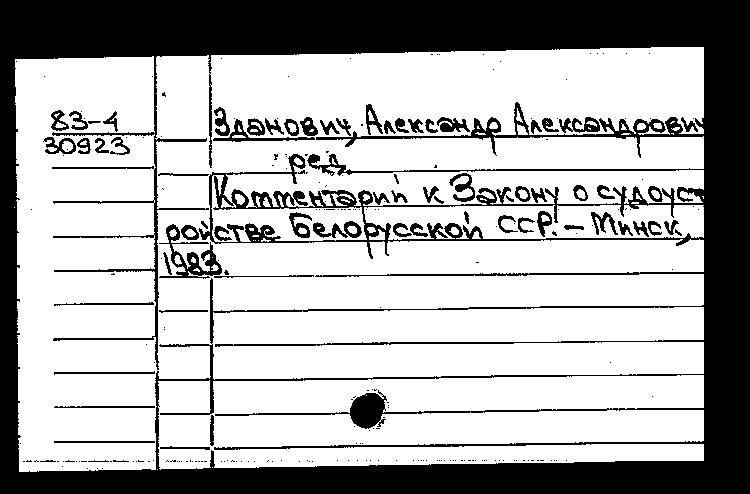 83-4
30923
Зданович, Александр Александрович
ред.
Комментарий к Закону о судоуст
ройстве Белорусской ССР. – Минск,
1983.